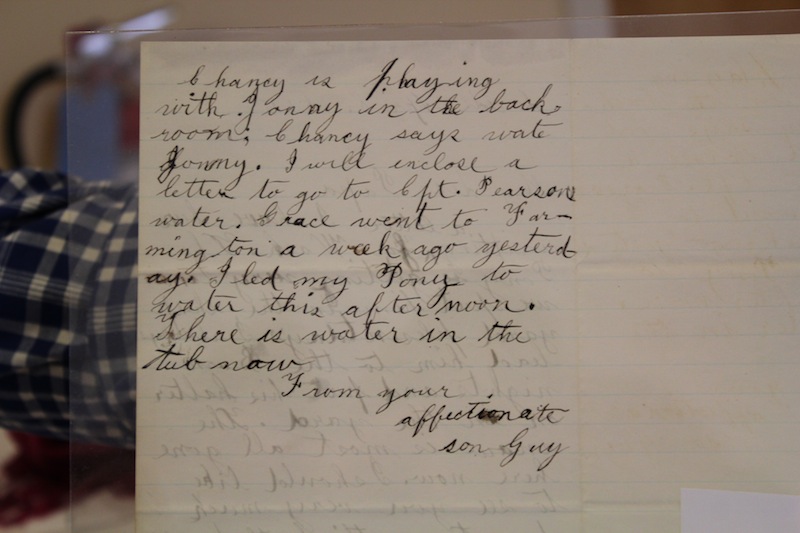 Chancy is playing
with Jonny in the back
room; Chancy says wate
Jonny. I will inclose a
letter to go to Cpt. Pearsons
water. Grace went to Far-
mington a week ago yesterd
ay. I led my Pony to
water this after noon.
There is water in the
tub now
From your
affectionate
son Guy